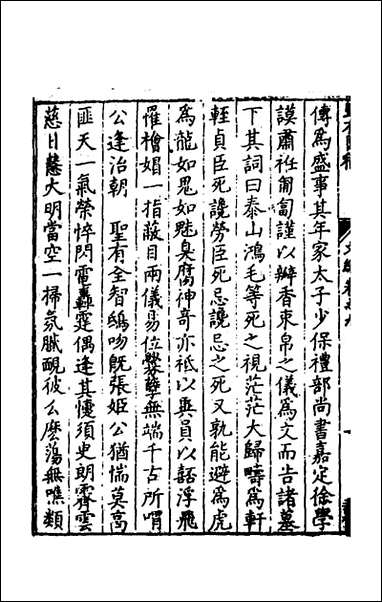 傳為盛事其年家太子少保禮部尚書嘉定徐學
謨肅袵匍匐謹以瓣香束帛之儀為文而告諸墓
下其詞曰泰山鴻毛等死之視茫茫大歸疇為軒
輊貞臣死讒勞臣死忌讒忌之死又孰能避為虎
為龍如鬼如魅臭腐神奇亦祗以異員以嚭浮飛
罹檜媢一指蔽目兩儀易位無端千古所喟
公逢治朝 聖有全智鴟吻旣張姬公猶惴莫高
匪天一氣榮悴閃雷轟霆偶逢其懥須史朗霽雲
慈日慧大明當空一掃氛膩彼么麽蕩無噍類